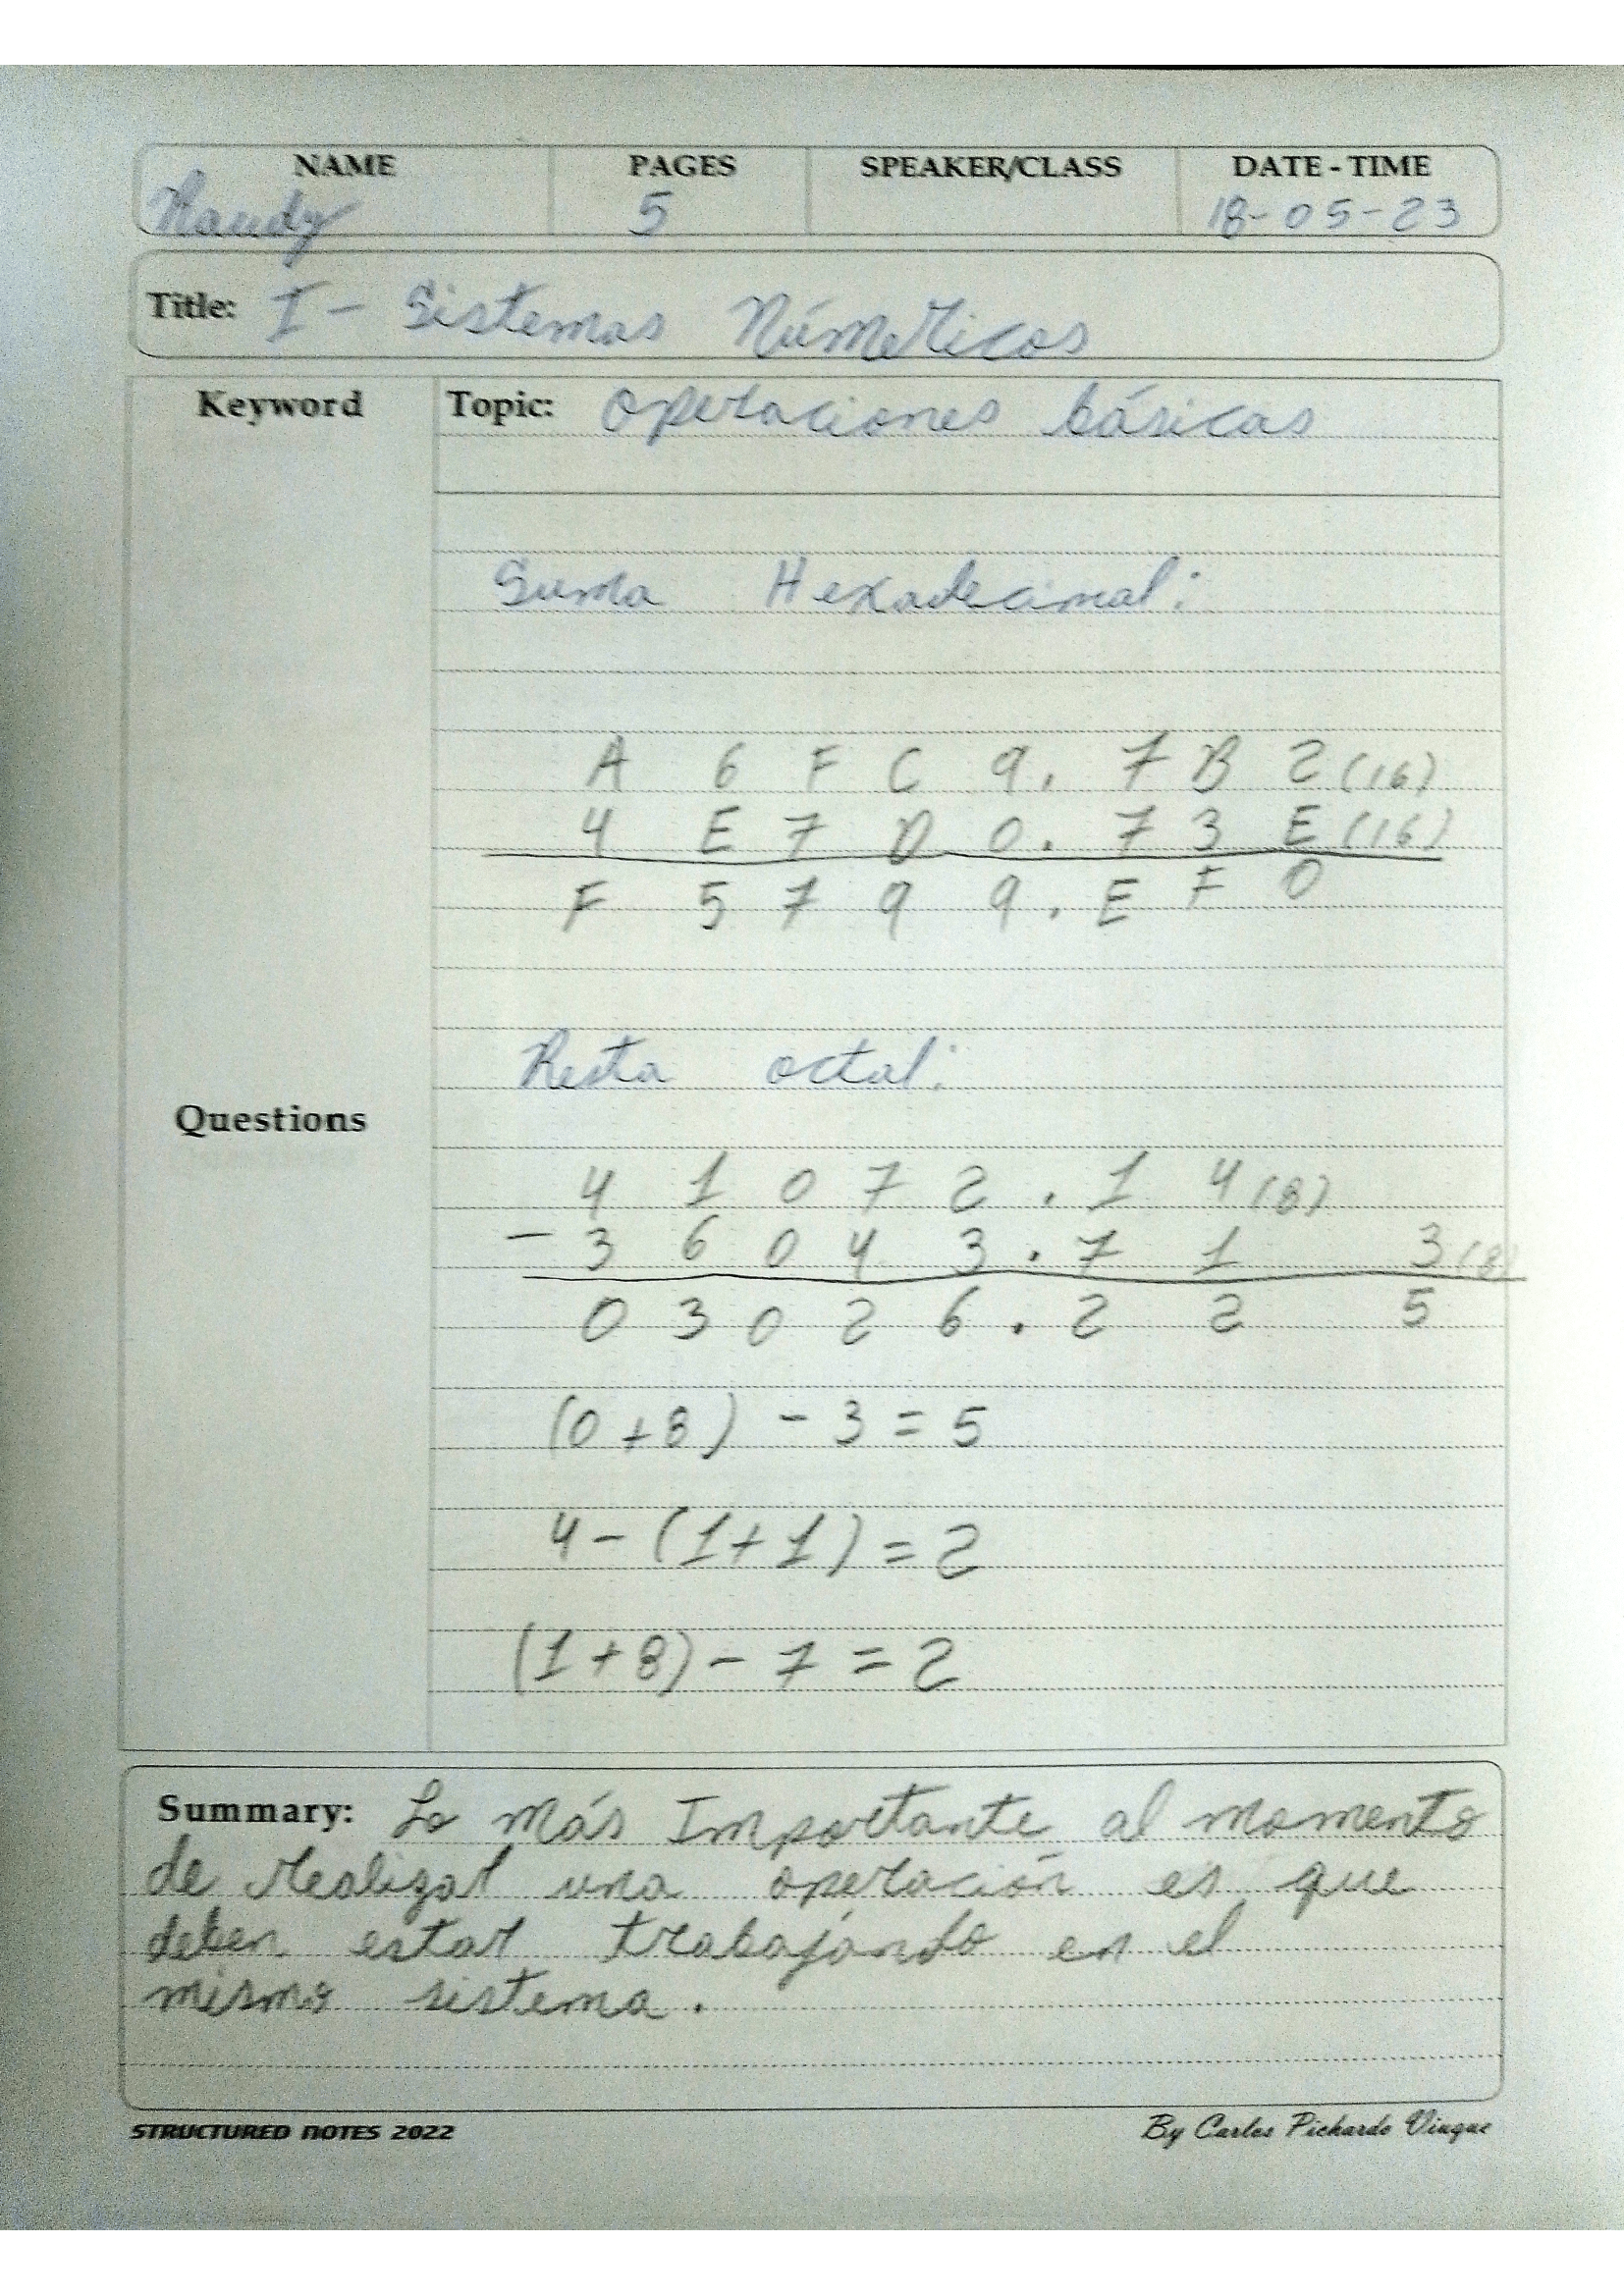 NAME PAGES SPEAKER/CLASS DATE - TIME
Raudy 5 18-05-23
Title: I - Sistemas Númericos
Keyword Topic: Operaciones básicas
Suma Hexadecimal:
A 6 F C 9 . 7 B 2 (16)
4 E 7 D 0 . 7 3 E (16)
F 5 7 9 9 . E F 0
Resta octal:
Questions
4 1 0 7 2 . 1 4 (8)
- 3 6 0 4 3 . 7 1 3 (8)
0 3 0 2 6 . 2 2 5
(0 + 8) - 3 = 5
4 - (1 + 1) = 2
(1 + 8) - 7 = 2
Summary: Lo más Importante al momento
de realizar una operación es que
deben estar trabajando en el
mismo sistema.
STRUCTURED NOTES 2022 By Carlos Pichardo Viuque